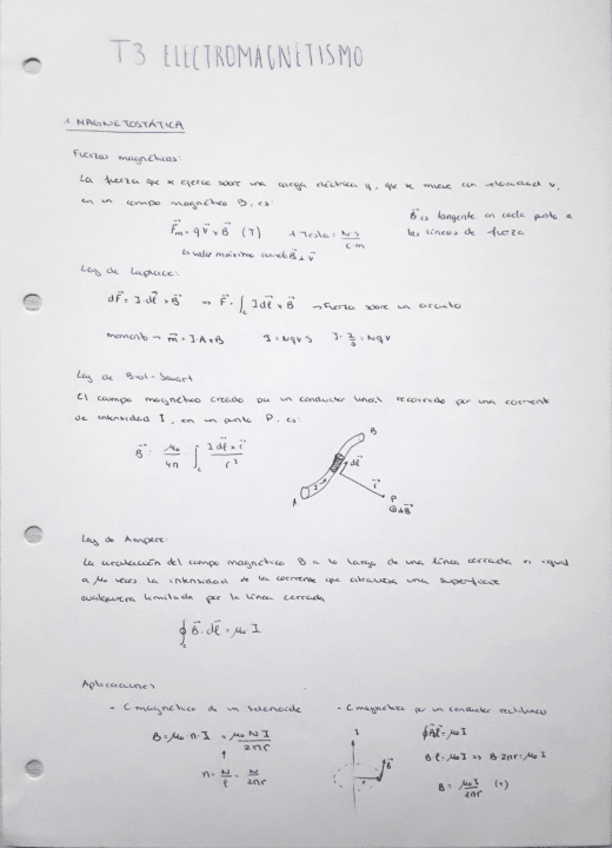 T3 ELECTROMAGNETISMO
1 MAGNETOSTÁTICA
Fuerzas magnéticas:
La fuerza que se ejerce sobre una carga eléctrica q, que se mueve con velocidad v,
en un campo magnético B, es:
F⃗m = q v⃗ × B⃗ (T) 1 Tesla = N·s / C·m
B⃗ es tangente en cada punto a
las líneas de fuerza
es valor máximo cuando B⃗ ⊥ v⃗
Ley de Laplace:
dF⃗ = I·dl⃗ × B⃗ → F⃗ = ∫c I dl⃗ × B⃗ → Fuerza sobre un circuito
momento → m⃗ = I·A × B I = NqvS J = I/S = Nqv
Ley de Biot-Savart
El campo magnético creado por un conductor lineal recorrido por una corriente
de intensidad I, en un punto P, es:
B⃗ = μ₀/4π · ∫c I dl⃗ × r⃗ / r³
B
dl⃗
I
r⃗
A
P
⊙ΔB⃗
Ley de Ampere:
La circulación del campo magnético B a lo largo de una línea cerrada es igual
a μ₀ veces la intensidad de la corriente que atraviesa una superficie
cualquiera limitada por la línea cerrada
∮c B⃗·dl⃗ = μ₀ I
Aplicaciones
- C magnético de un solenoide
B = μ₀·n·I = μ₀ N I / 2πr
n = N/l = N/2πr
- C magnético por un conductor rectilíneo
I
B⃗
r
∮B⃗l⃗ = μ₀ I
B·l = μ₀ I → B·2πr = μ₀ I
B = μ₀ I / 2πr (T)